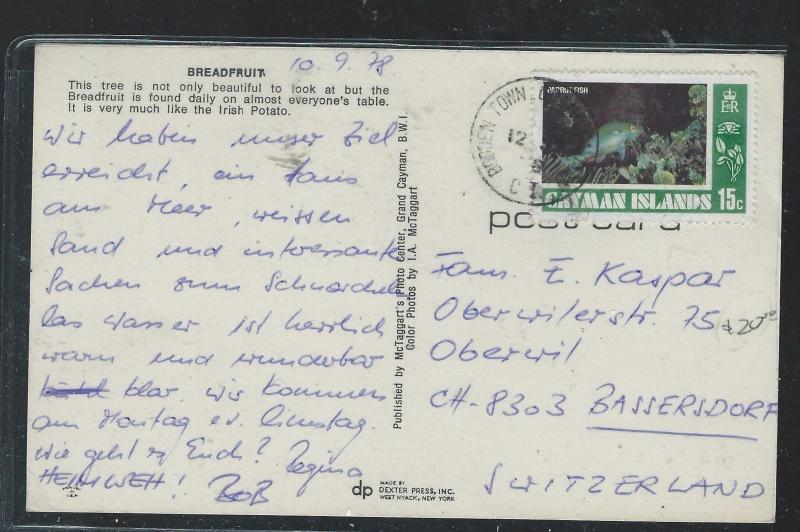 BREADFRUIT
10.9.78
This tree is not only beautiful to look at but the
Breadfruit is found daily on almost everyone's table.
It is very much like the Irish Potato.
Wir haben unser Ziel
erreicht, ein Haus
am Meer, weissen
Sand und interessante
Sachen zum Schnorcheln
Das Wasser ist herrlich
warm und wunderbar
klar. Wir kommen
am Montag ev. Dienstag.
Wie geht es Euch? Regina
HEIMWEH! BOB
Published by McTaggart's Photo Center, Grand Cayman, B.W.I.
Color Photos by I.A. McTaggart
dp MADE BY
DEXTER PRESS, INC.
WEST NYACK, NEW YORK
BODDEN TOWN
12
PARROT FISH
E R
CAYMAN ISLANDS 15c
post card
Fam. E. Kaspar
Oberwilerstr. 75
Oberwil
CH-8303 BASSERSDORF
SWITZERLAND